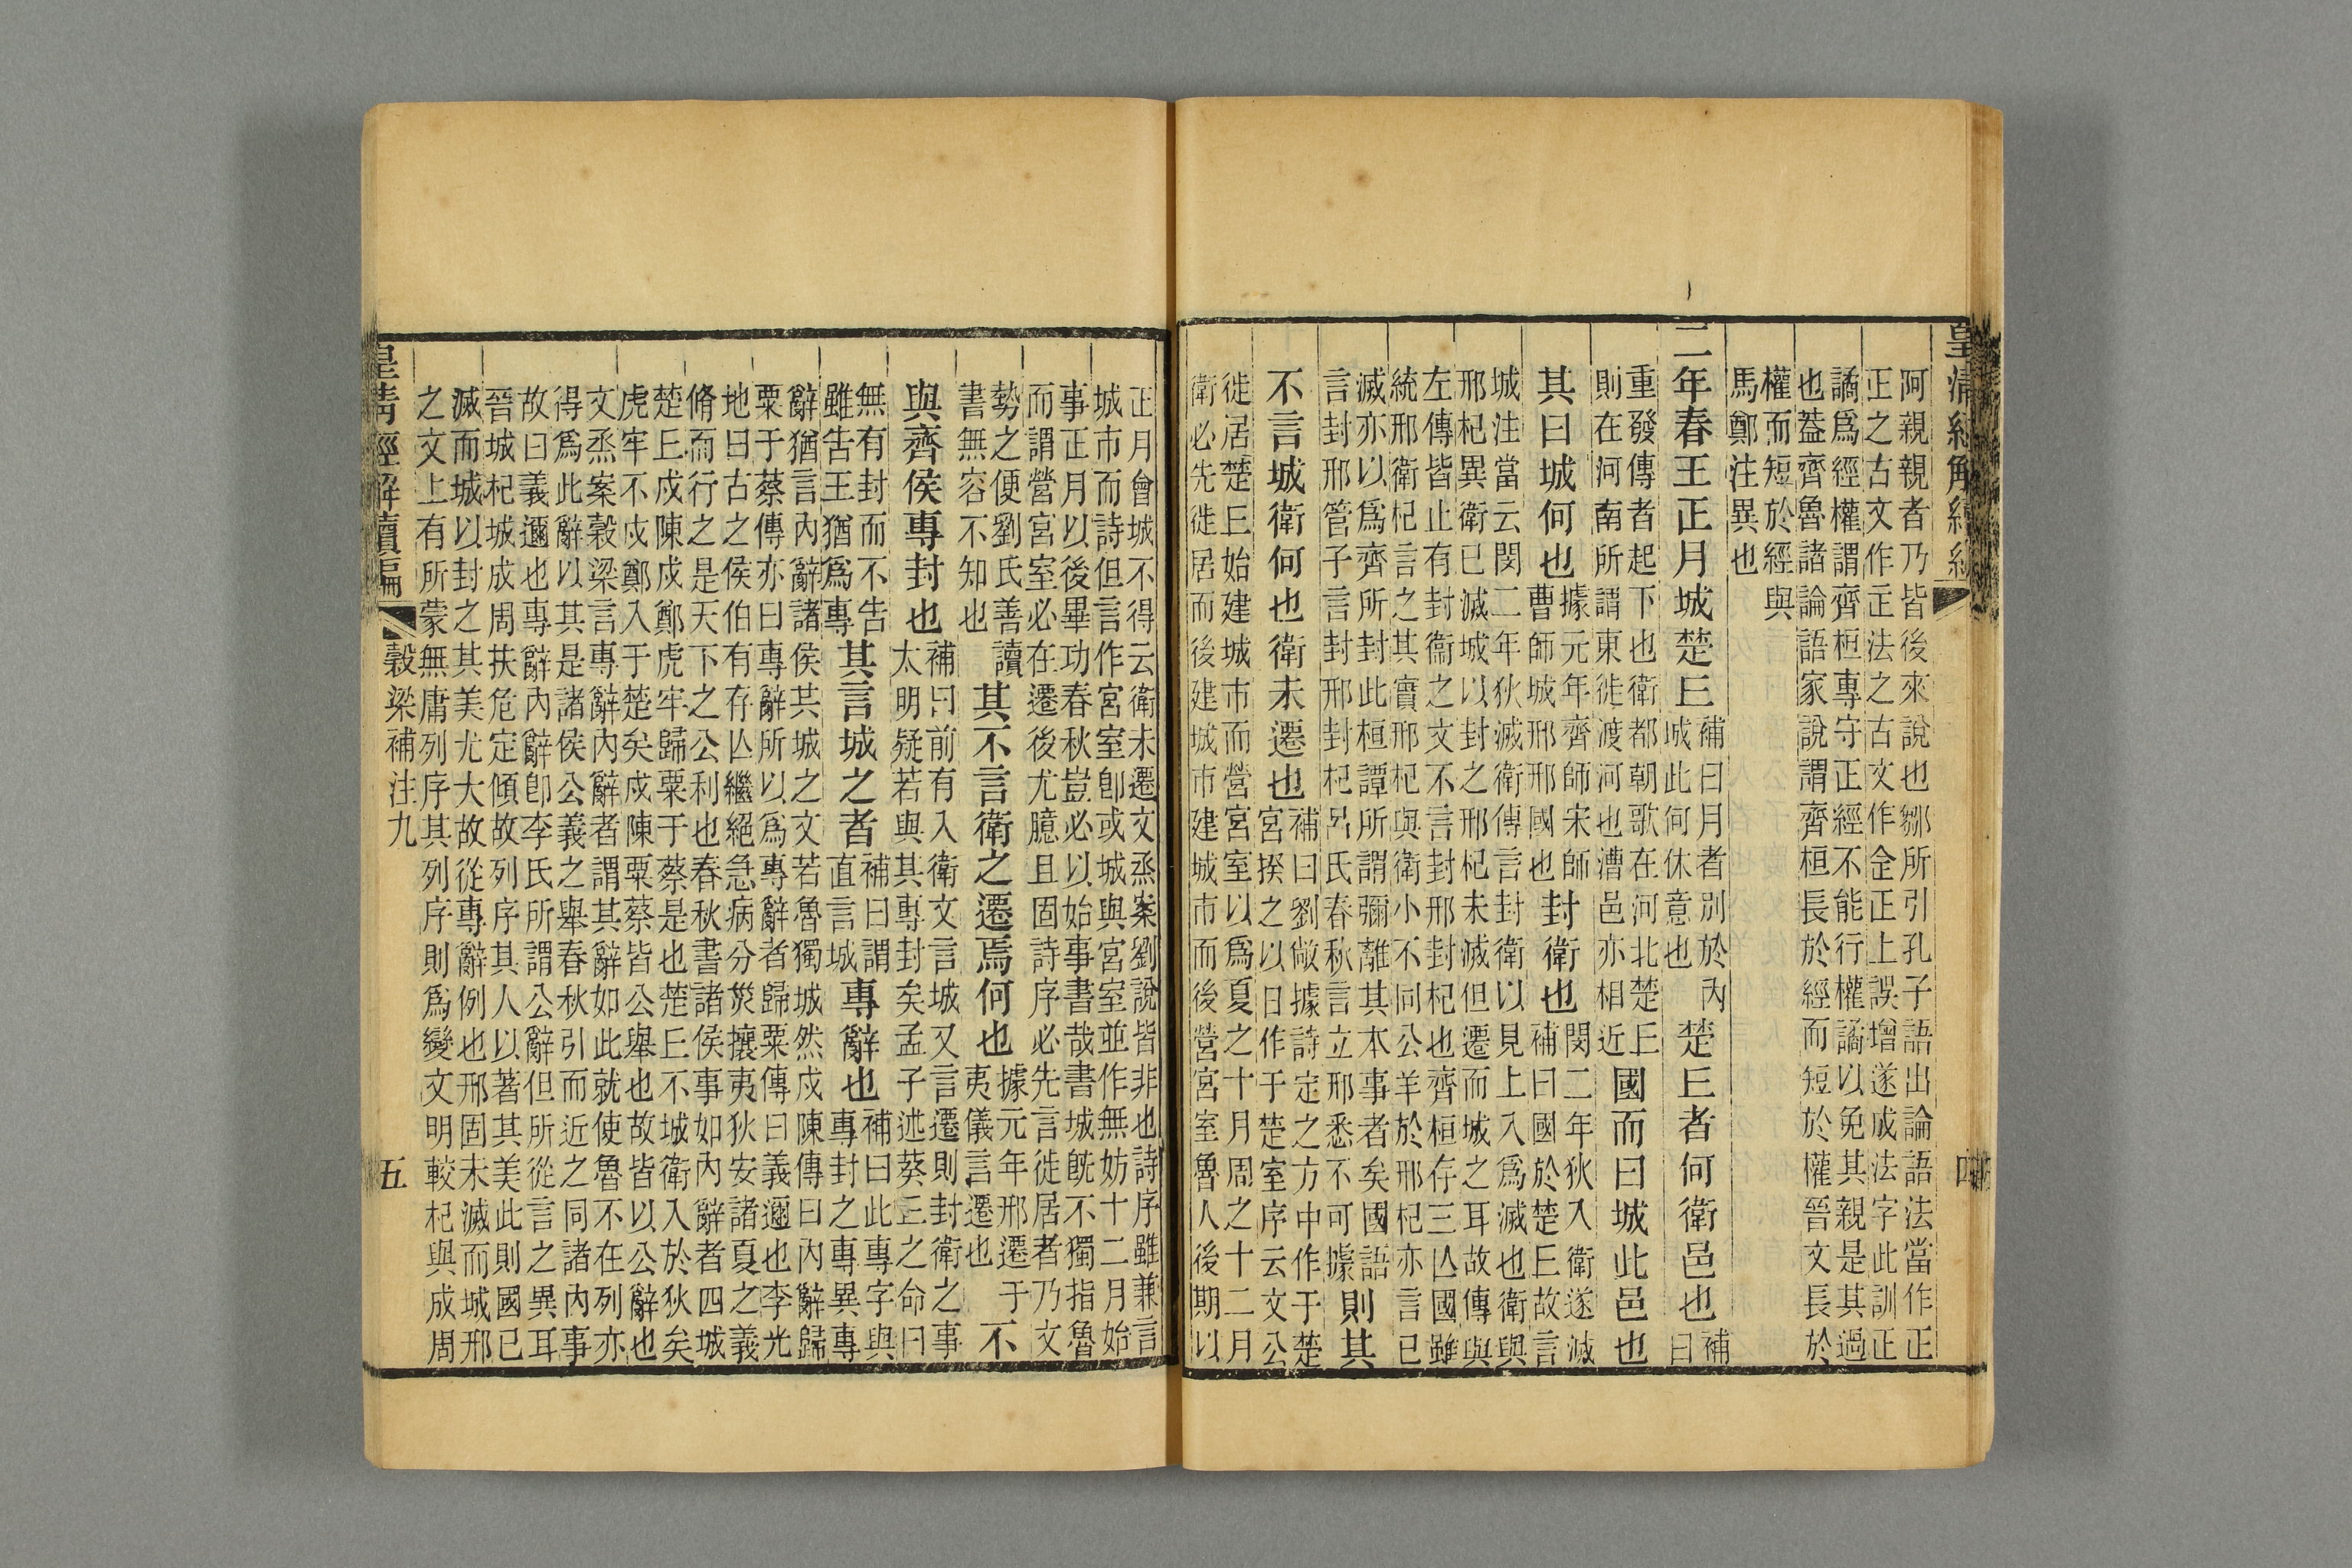 皇清經解續編 四
阿親親者乃皆後來說也鄒所引孔子語出論語法當作正
正之古文作㱏法之古文作佱正上誤增遂成法字此訓正
譎爲經權謂齊桓專守正經不能行權譎以免其親是其過
也蓋齊魯諸論語家說謂齊桓長於經而短於權晉文長於
權而短於經與
馬鄭注異也
二年春王正月城楚丘
補曰月者別於內
城此何休意也
楚丘者何衛邑也
補
曰
重發傳者起下也衛都朝歌在河北楚丘
則在河南所謂東徙渡河也漕邑亦相近
國而曰城此邑也
其曰城何也
據元年齊師宋師
曹師城邢邢國也
封衛也
閔二年狄入衛遂滅
補曰國於楚丘故言
城注當云閔二年狄滅衛傳言封衛以見上入爲滅也衛與
邢杞異衛已滅城以封之邢杞未滅但遷而城之耳故傳與
左傳皆止有封衞之文不言封邢封杞也齊桓存三亾國雖
統邢衛杞言之其實邢杞與衛小不同公羊於邢杞亦言已
滅亦以爲齊所封此桓譚所謂彌離其本事者矣國語
言封邢管子言封邢封杞呂氏春秋言立邢悉不可據
則其
不言城衛何也衛未遷也
補曰劉敞據詩定之方中作于楚
宮揆之以日作于楚室序云文公
徙居楚丘始建城市而營宮室以爲夏之十月周之十二月
衛必先徙居而後建城市建城市而後營宮室魯人後期以
正月會城不得云衛未遷文烝案劉說皆非也詩序雖兼言
城市而詩但言作宮室卽或城與宮室並作無妨十二月始
事正月以後畢功春秋豈必以始事書哉書城旣不獨指魯
而謂營宮室必在遷後尤臆且固詩序必先言徙居者乃文
勢之便劉氏善讀
書無容不知也
其不言衛之遷焉何也
據元年邢遷于
夷儀言遷也
不
與齊侯專封也
補曰前有入衛文言城又言遷則封衛之事
太明疑若與其專封矣孟子述葵丘之命曰
無有封而不告
雖告王猶爲專
其言城之者
補曰謂
直言城
專辭也
補曰此專字與
專封之專異專
辭猶言內辭諸侯共城之文若魯獨城然戍陳傳曰內辭歸
粟于蔡傳亦曰專辭所以爲專辭者歸粟傳曰義邇也李光
地曰古之侯伯有存亾繼絕急病分災攘夷狄安諸夏之義
脩而行之是天下之公利也春秋書諸侯事如內辭者四城
楚丘戍陳戍鄭虎牢歸粟于蔡是也楚丘不城衛入於狄矣
虎牢不戍鄭入于楚矣戍陳粟蔡皆公舉也故皆以公辭也
文烝案穀梁言專辭內辭者謂其辭如此就使魯不在列亦
得爲此辭以其是諸侯公義之舉春秋引而近之同諸內事
故曰義邇也專辭內辭卽李氏所謂公辭但所從言之異耳
晉城杞城成周扶危定傾故列序其人以著其美此則國已
滅而城以封之其美尤大故從專辭例也邢固未滅而城邢
之文上有所蒙無庸列序其列序則爲變文明較杞與成周
皇清經解續編 穀梁補注九 五